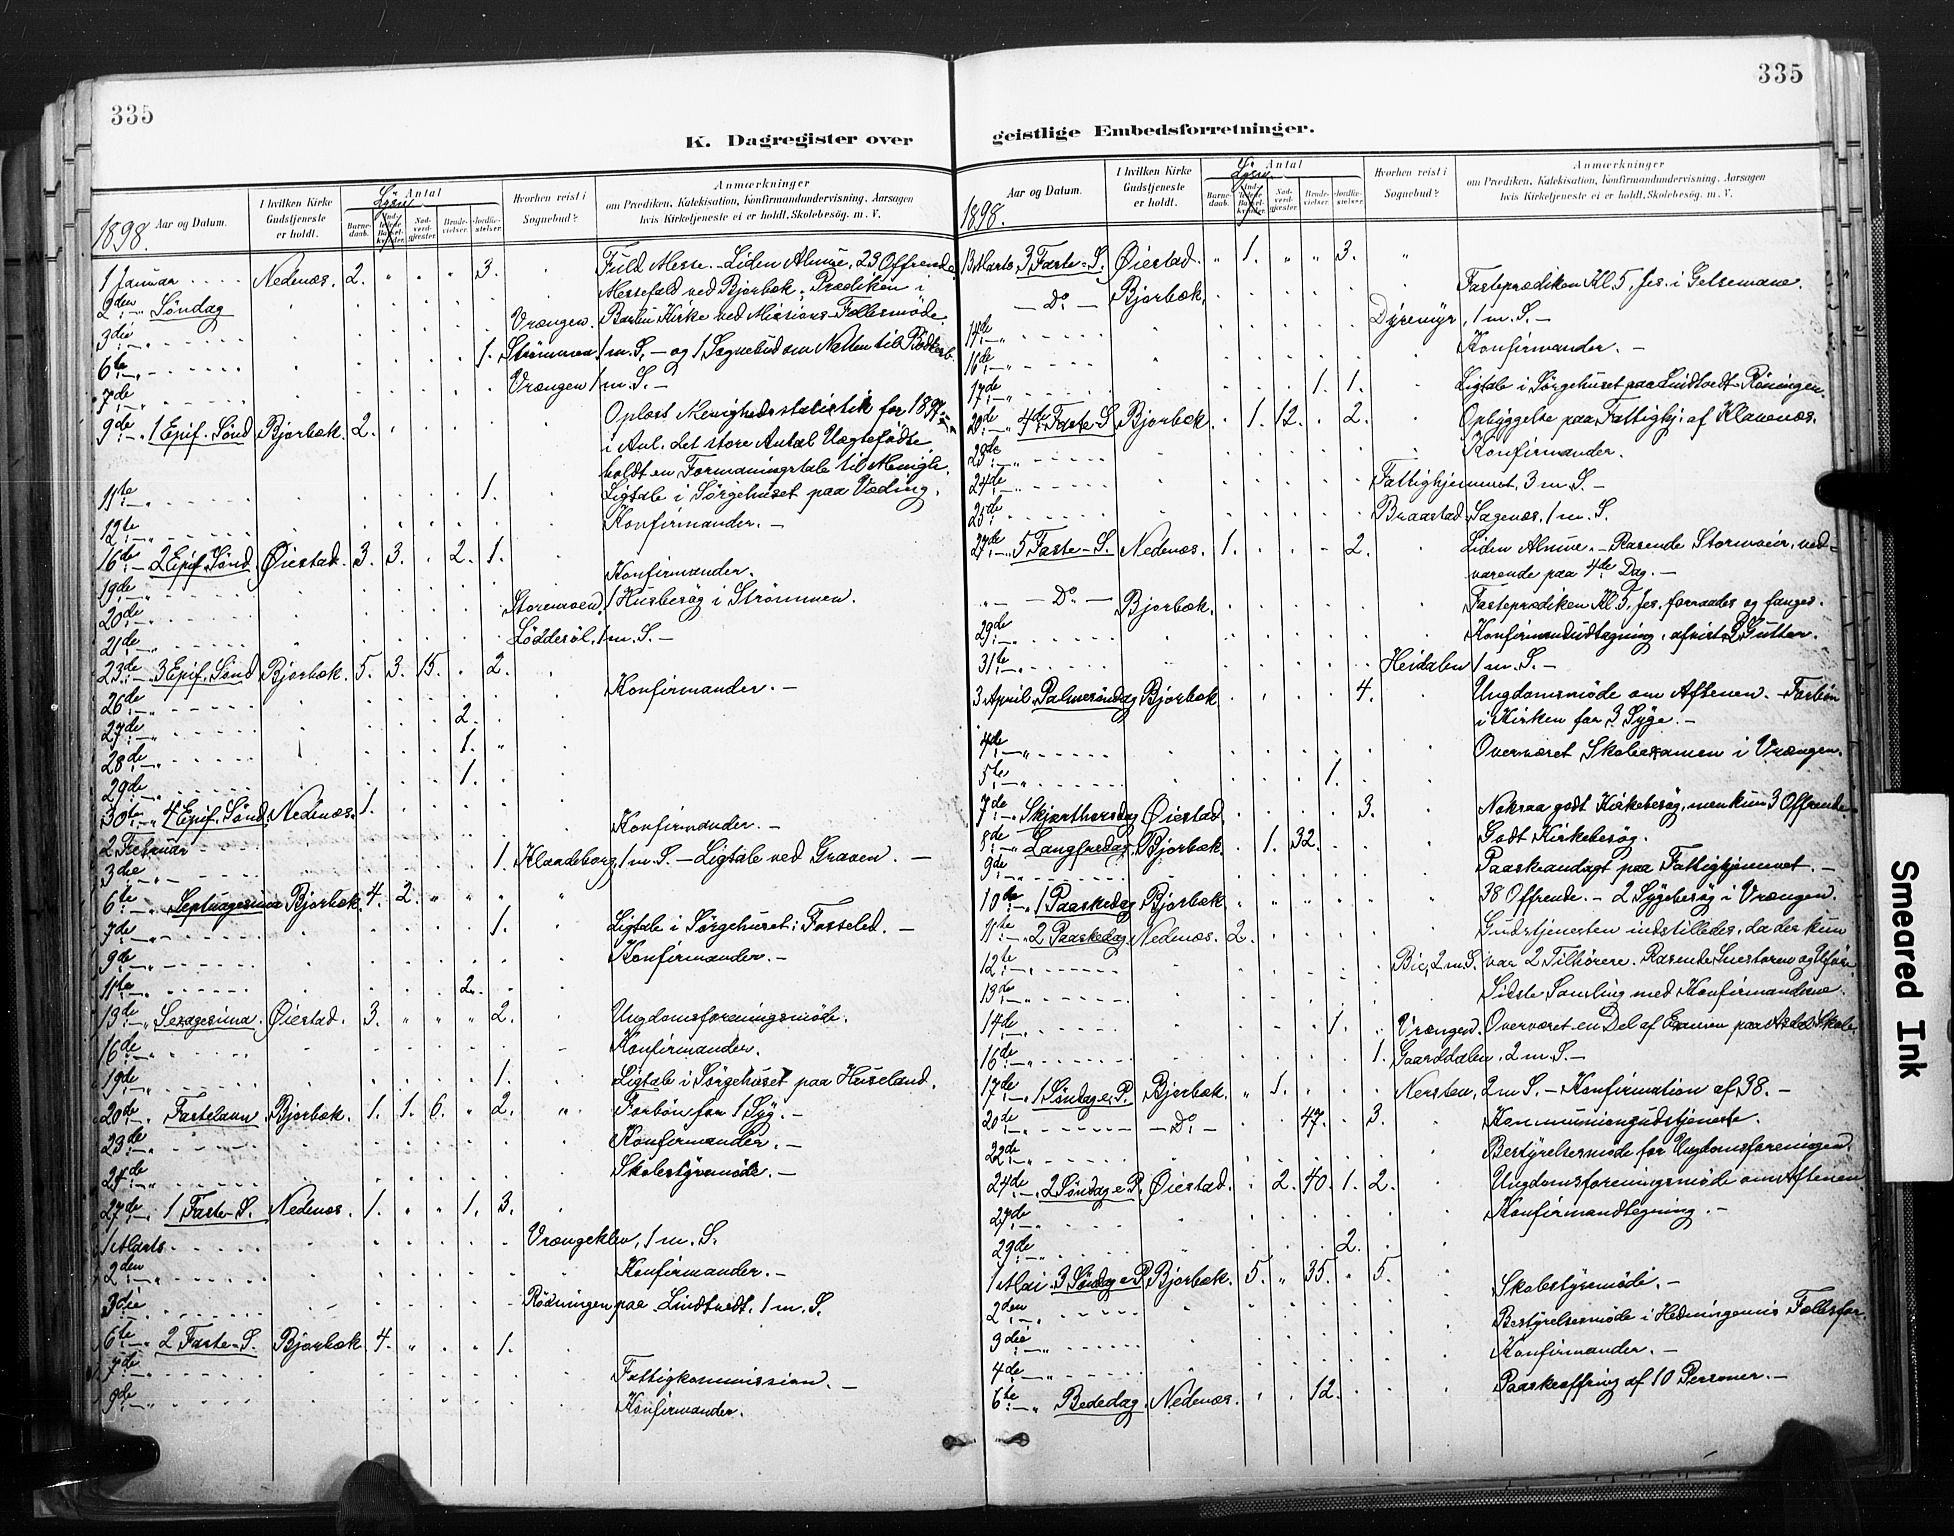 335
K. Dagregister over
1898.
Aar og Datum.
I hvilken Kirke Gudstjeneste er holdt.
Antal
Barne-daab.
Nad-verd-gjester.
Brude-vielser.
Jordfæ-stelser.
Hvorhen reist i Sognebud?
Anmærkninger
om Prædiken, Katekisation, Konfirmandundervisning. Aarsagen
hvis Kirketjeneste ei er holdt. Skolebesøg. m. V.
1 Januar Nedenæs. 2. " . . 3. Fuld Messe. - Liden Almue, 23 Offrende.
2den Søndag Messefald ved Bjorbæk. Prædiken i
3die Vrængen. Barbu Kirke ved Missions-Fællesmøde.
6te 1. Strømmen, 1 m. S. - og 1 Sognebud om Natten til
7de Vrængen 1 m. S. -
9de 1 Epif. Sønd Bjorbæk. 2. Oplæst Menighedsstatistik for 1897
i Anl. det store Antal Uægtefødte
holdt en Formaningstale til Menigh.
11te 1. Ligtale i Sørgehuset paa Væding.
12te Konfirmander. -
16de 2 Epif. Sønd Øiestad. 3. 3. . 2. 1.
19de Konfirmander.
20de Storemoen, 1 Husbesøg i Strømmen.
21de Løddesøl, 1 m. S. -
23de 3 Epif. Sønd Bjorbæk. 5. 3. 15. . 2.
26de Konfirmander. -
27de 2.
28de 1.
29de 1.
30te 4 Epif. Sønd. Nedenæs. 1.
2 Februar Konfirmander. -
3die 1. Klandeborg, 1 m. S. - Ligtale ved Graven. -
6te Septuagesima Bjorbæk. 4. 2.
7de 1. Ligtale i Sørgehuset: Fosseled. -
9de Konfirmander. -
11te 2.
13de Sexagesima. Øiestad. 3. " " " 2. Ungdomsforeningsmøde.
16de Konfirmander.
19de 1. Ligtale i Sørgehuset paa Huseland.
20de Fastelavn Bjorbæk. 1. 1. 6. " 2. Forbøn for 1 Syg. -
23de Konfirmander. -
24de Skolestyremøde. -
27de 1 Faste-S. Nedenæs. 1. " " 1. 3.
1 Marts Vrængeklev, 1 m. S.
2den Konfirmander. -
3die Rødningen paa Lindtvedt, 1 m. S.
6te 2 Faste-S. Bjorbæk 4. " . " 1.
7de Fattigkommission. -
9de Konfirmander.
335
geistlige Embedsforretninger.
1898.
Aar og Datum.
I hvilken Kirke Gudstjeneste er holdt.
Antal
Barne-daab.
Nad-verd-gjester.
Brude-vielser.
Jordfæ-stelser.
Hvorhen reist i Sognebud?
Anmærkninger
om Prædiken, Katekisation, Konfirmandundervisning. Aarsagen
hvis Kirketjeneste ei er holdt. Skolebesøg. m. V.
13 Marts 3 Faste-S. Øiestad. " 1. " " 3.
- Do. - Bjorbæk. Fasteprædiken Kl. 5, Jes. i Getsemane.
14de Dyremyr, 1 m. S. -
16de Konfirmander. -
17de 1. 1. Ligtale i Sørgehuset paa Lindtvedt-Røningen.
20de 4de Faste-S Bjorbæk . 1. 12. . 2. Opbyggelse paa Fattighj. af Klavenæs.
23de Konfirmander.
24de Fattighjemmet, 3 m. S. -
25de Braastad-Sagenæs, 1 m. S.
27de 5 Faste-S. Nedenæs. 1. . . . 2. Liden Almue. - Rasende Stormveir, ved-
varende paa 4de Dag. -
- Do. - Bjorbæk. Fasteprædiken Kl. 5, Jes. forraades og fanges.
29de Konfirmandudtagning, afvist 2 Gutter.
31te Heidalen 1 m. S. -
3 April Palmesøndag Bjorbæk 4. Ungdomsmøde om Aftenen. - Forbøn
i Kirken for 3 Syge. -
4de Overværet Skoleexamen i Vrængen.
5te 1.
7de Skjærthorsdag Øiestad 3. Noksaa godt Kirkebesøg, men kun 3 Offrende.
8de Langfredag. Bjorbæk. . 1. 32. Godt Kirkebesøg.
9de Paaskeandagt paa Fattighjemmet. -
10de 1 Paaskedag Bjorbæk. 38 Offrende. - 2 Sygebesøg i Vrængen.
11te 2 Paaskedag Nedenæs. 2. Gudstjenesten indstilledes, da der kun
12te Bie, 2 m. S. var 2 Tilhørere. Rasende Snestorm og Uføre.
13de Sidste Samling med Konfirmanderne.
14de 1. Vrængen. Overværet en Del af Examen paa Skole.
16de 1. Gaarddalen, 2 m. S. -
17de 1 Søndag e. P. Bjorbæk. " 1. Nersten, 2 m. S. - Konfirmation af 38. -
20de - Do. - 47. . 3. Kommuniongudstjeneste.
22de Bestyrelsesmøde for Ungdomsforeningen.
24de 2 Søndag e. P. Øiestad . 2. 40. 1. 2. Ungdomsforeningsmøde om Aftenen
27de Konfirmandtegning. -
29de 2.
1 Mai 3 Søndag e. P. Bjorbæk. 5. " 35. " 5.
2den Skolestyremøde. -
3die Bestyrelsesmøde i Hedningemis. Fællesfor.
4de Konfirmander. -
6te Bededag. Nedenæs. " . 12. Paaskeoffring af 10 Personer. -
Smeared Ink